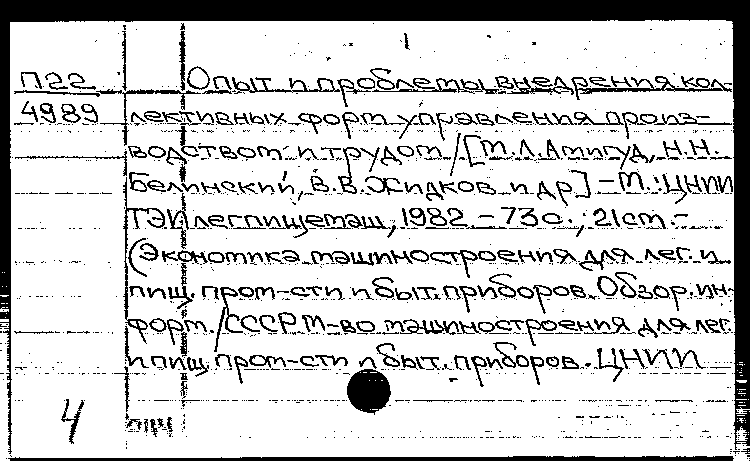 П22 Опыт и проблемы внедрения кол-
4989 лективных форм управления произ-
водством и трудом / [М.Л. Амигуд, Н.Н.
Белинский, В.В. Жидков и др] - М.: ЦНИИ
ТЭИлегпищемаш, 1982. - 73 с.; 21 см. -
(Экономика машиностроения для лег. и
пищ. пром-сти и быт. приборов. Обзор. ин-
форм. / СССР. М-во машиностроения для лег.
и пищ. пром-сти и быт. приборов. ЦНИИ
4